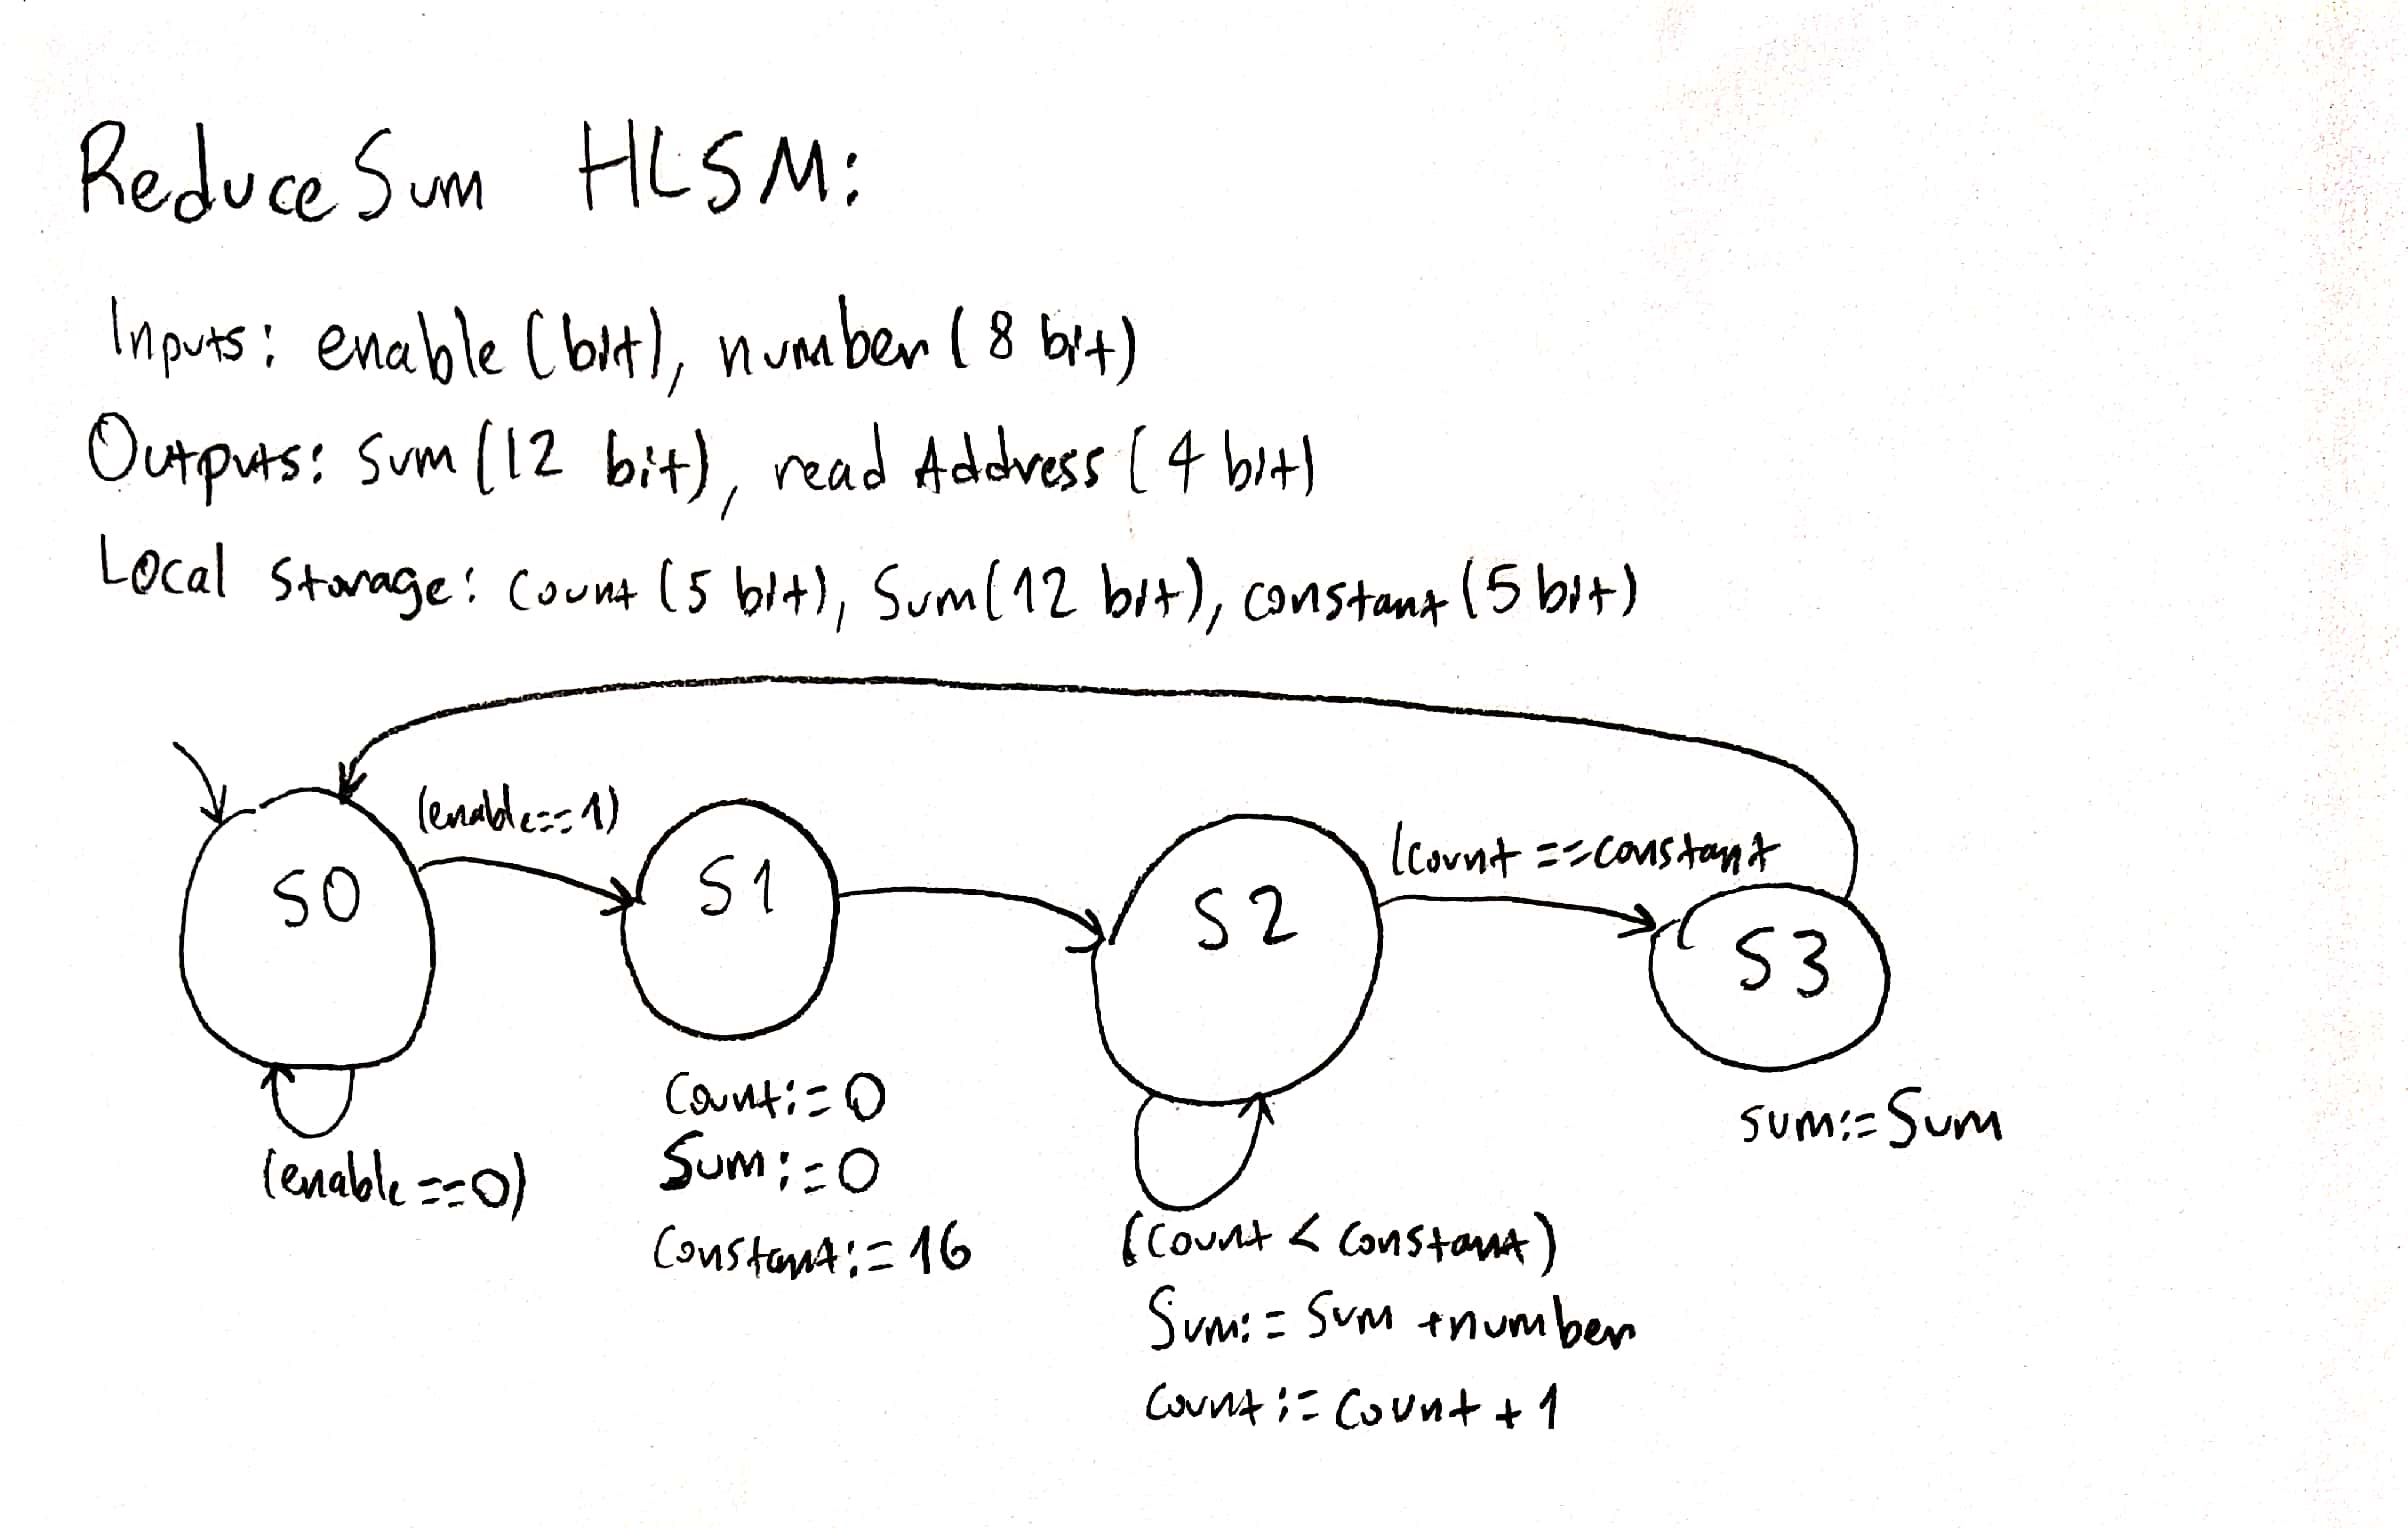 Reduce Sum HLSM:
Inputs: enable (bit), number (8 bit)
Outputs: sum (12 bit), read Address (4 bit)
Local Storage: Count (5 bit), Sum (12 bit), constant (5 bit)
(enable==1)
(count ==constant
S0
S1
S2
S3
(enable==0)
Count:=0
Sum:=0
Constant:=16
(count < constant)
Sum:= Sum +number
Count:= Count +1
sum:= Sum